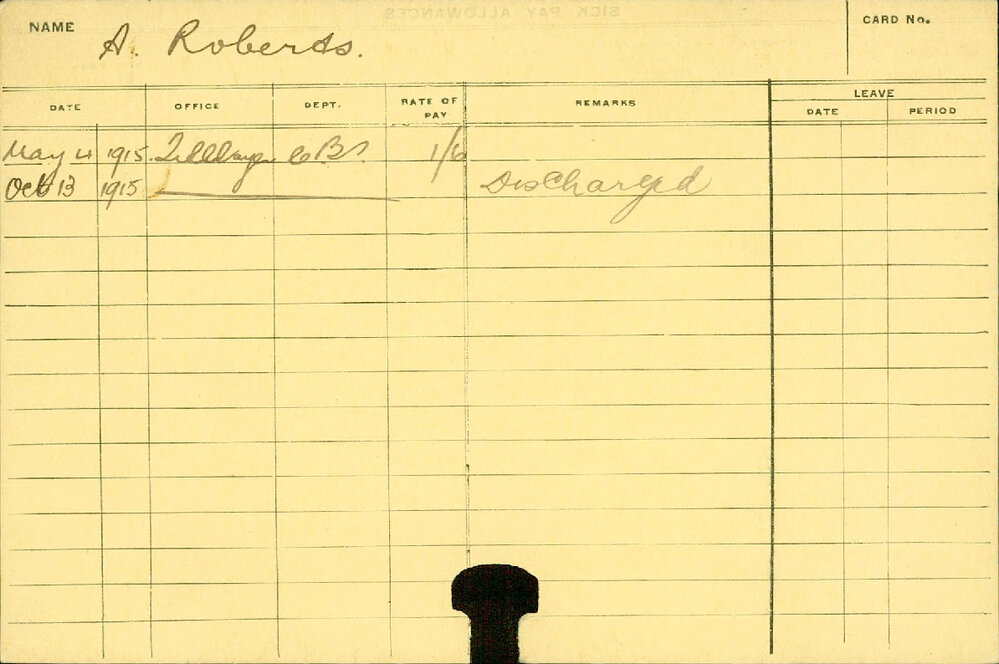 SICK PAY ALLOWANCES
NAME A. Roberts. CARD No.
DATE OFFICE DEPT. RATE OF PAY REMARKS LEAVE
DATE PERIOD
May 4 1915. 1/6
Oct 13 1915 Discharged